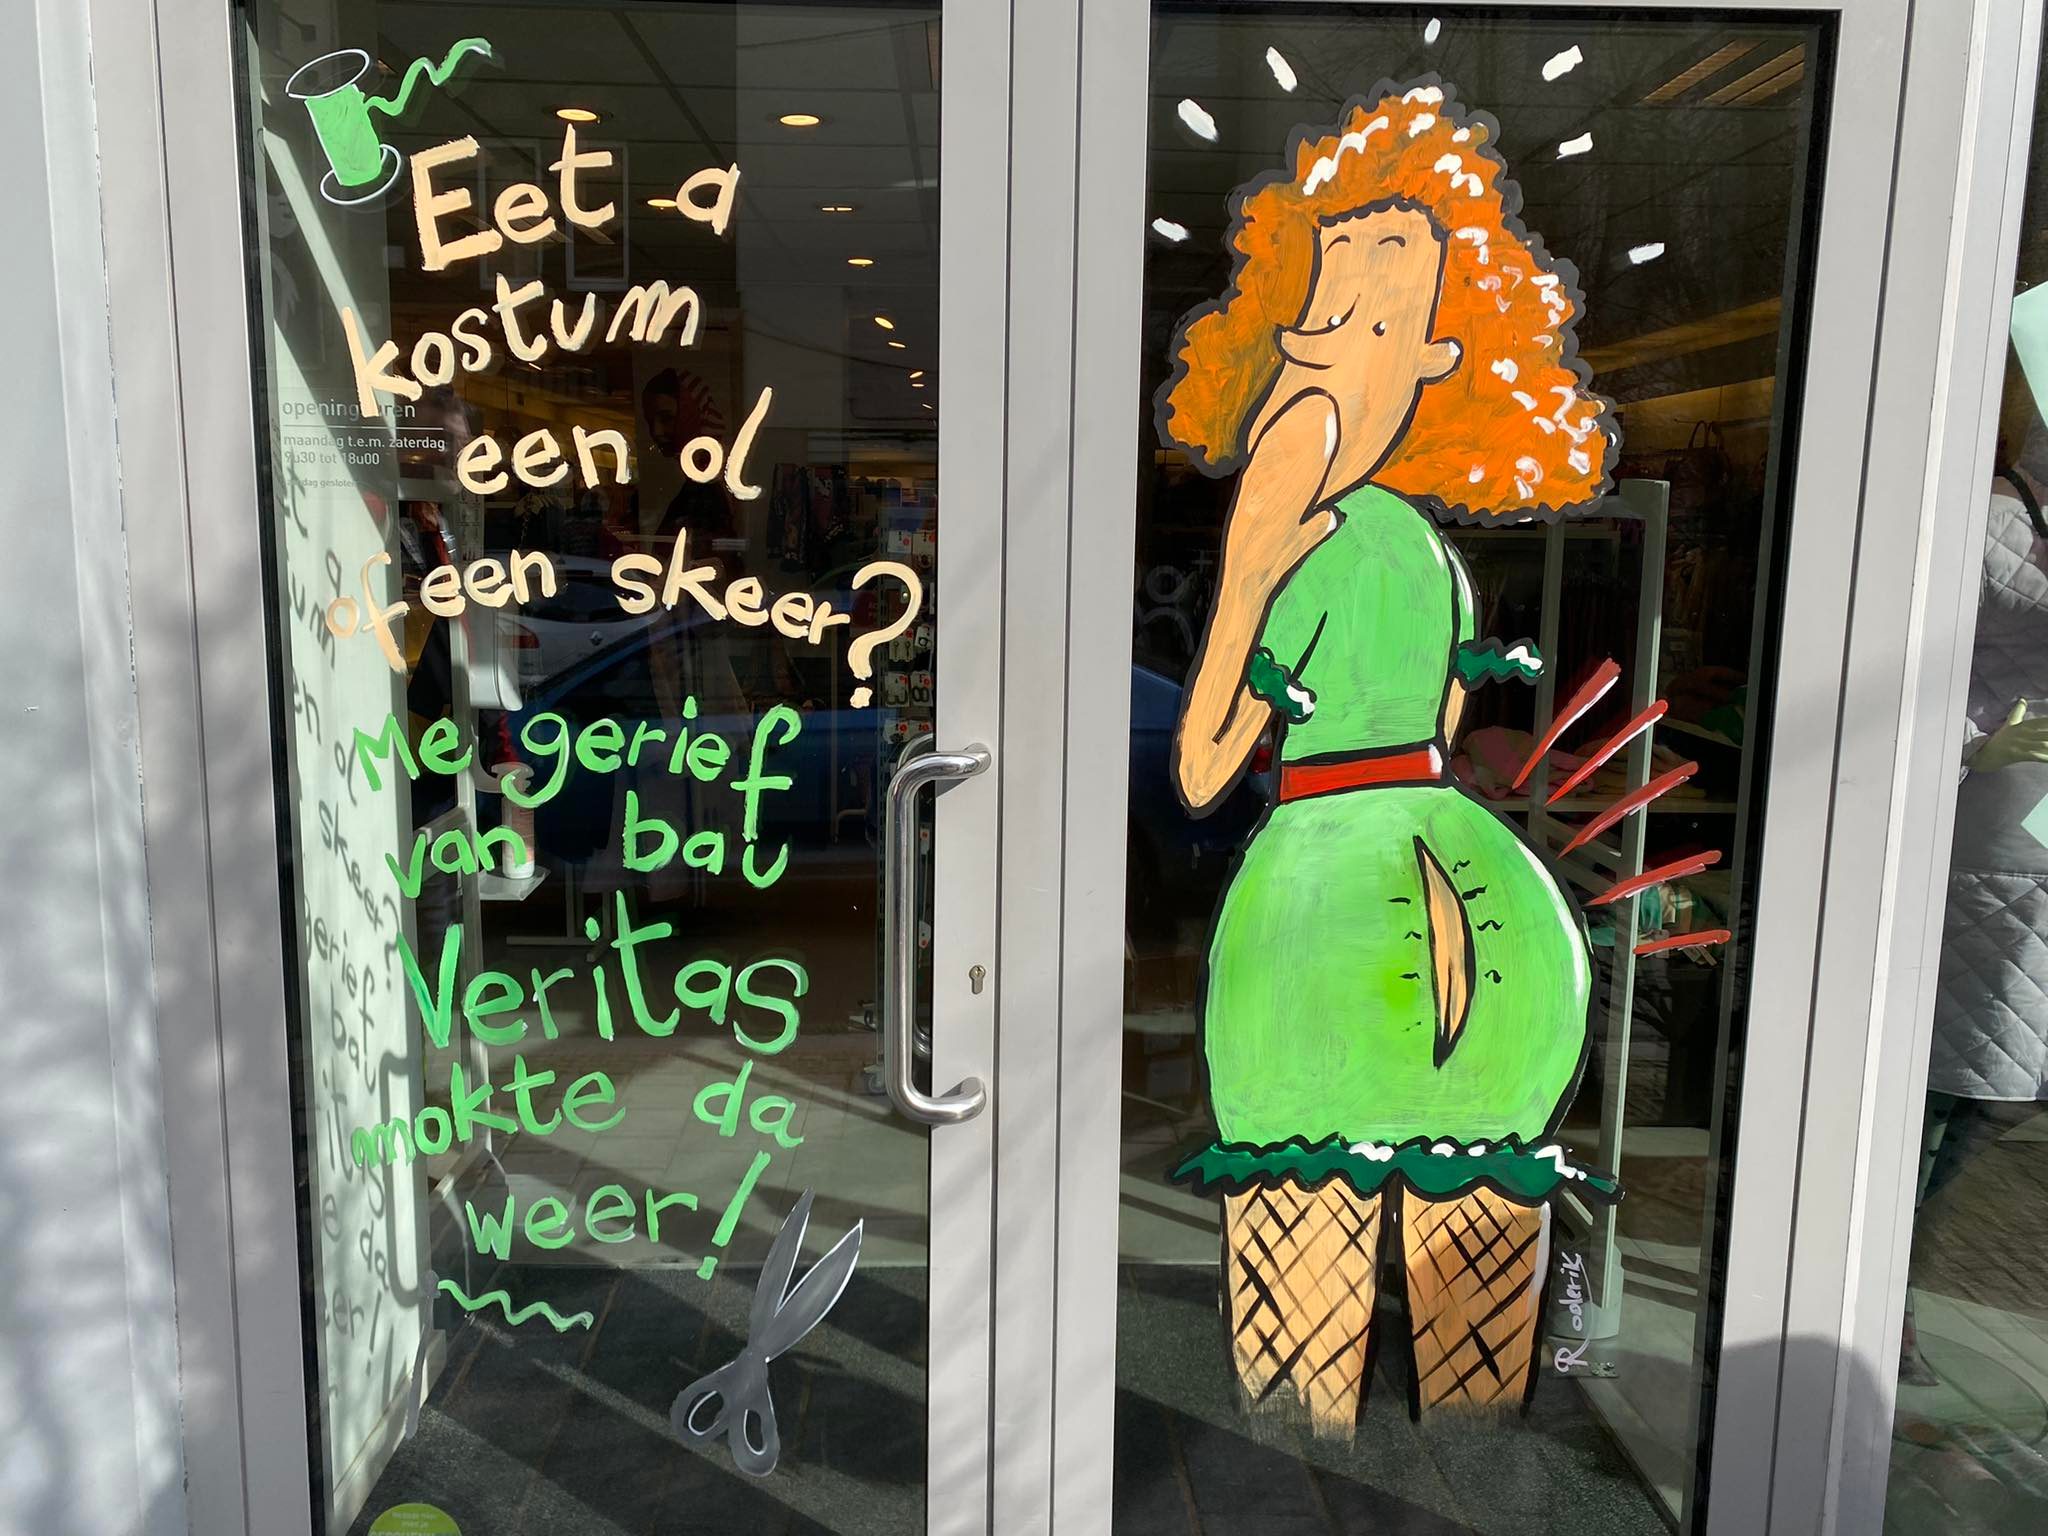 Eet a
kostum
een ol
of een skeer?
Me gerief
van bau
Veritas
mokte da
weer!
openingsuren
maandag t.e.m. zaterdag
9u30 tot 18u00
zondag gesloten
Roderik